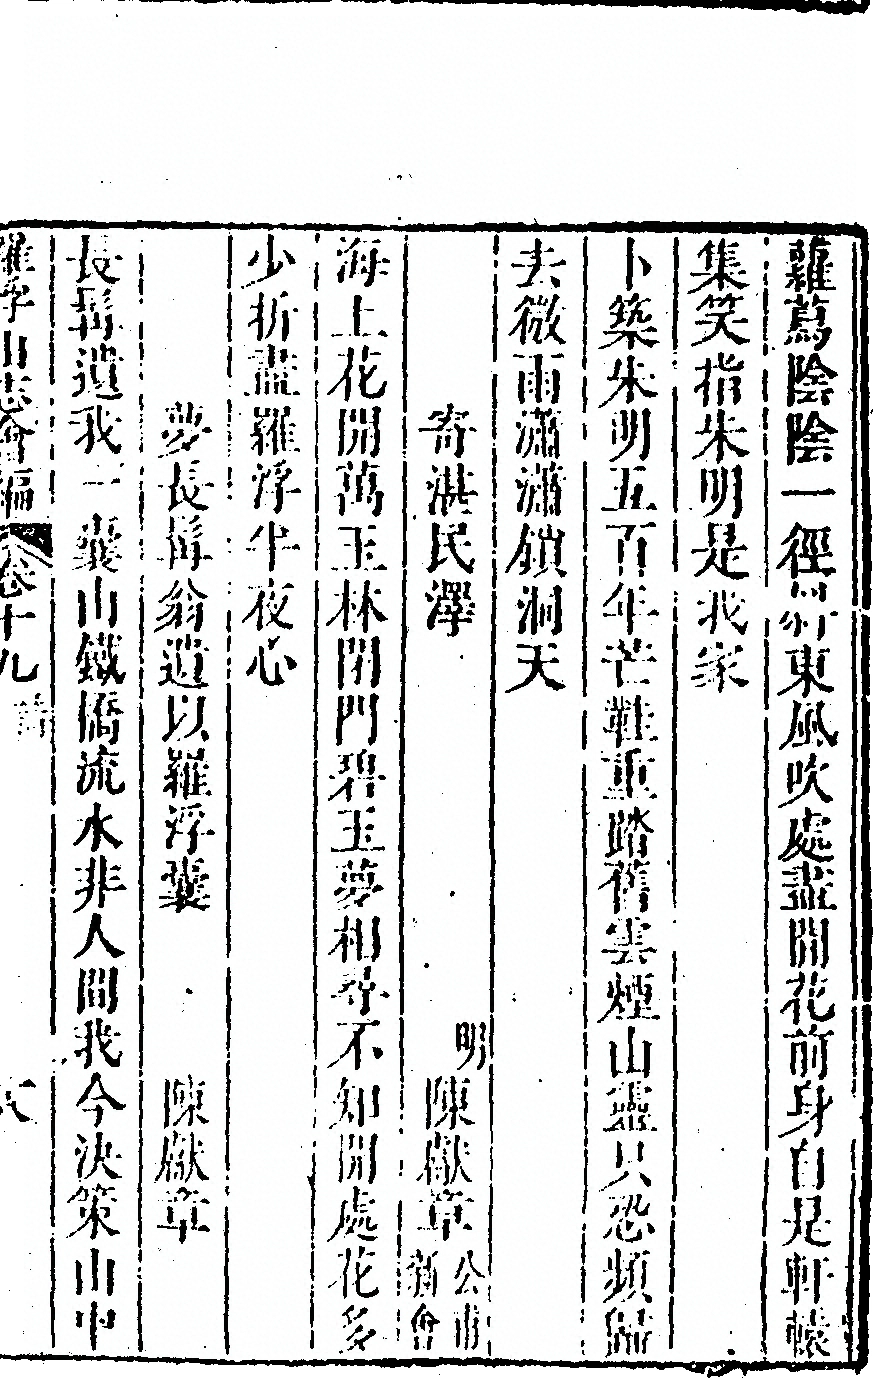 蘿蔦陰陰一徑斜東風吹處盡開花前身自是軒轅
集笑指朱明是我家
卜築朱明五百年芒鞋重踏舊雲煙山靈只恐頻歸
去微雨瀟瀟鎖洞天
寄湛民澤 明陳獻章公甫新會
海上花開萬玉林閉門碧玉夢相尋不知開處花多
少折盡羅浮半夜心
夢長髯翁遺以羅浮囊 陳獻章
長髯遺我一囊山鐵橋流水非人間我今決策山中
羅浮山志會編 卷十九 詩